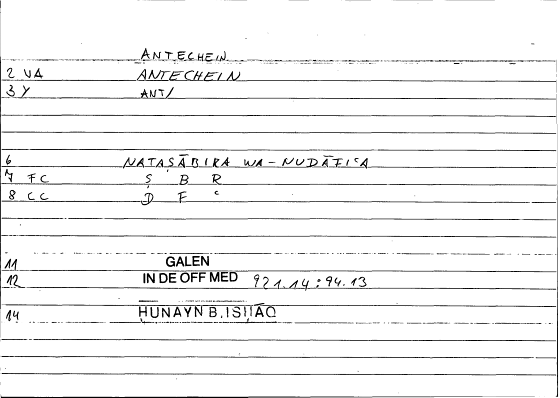 ANTECHEIN
2 VA ANTECHEIN
3 Y ANT/
6 NATAṢĀBIRA WA-NUDĀFIʿA
7 FC Ṣ B R
8 CC D F ʿ
11 GALEN
12 IN DE OFF MED 921.14:94.13
14 ḤUNAYN B.ISḤĀQ